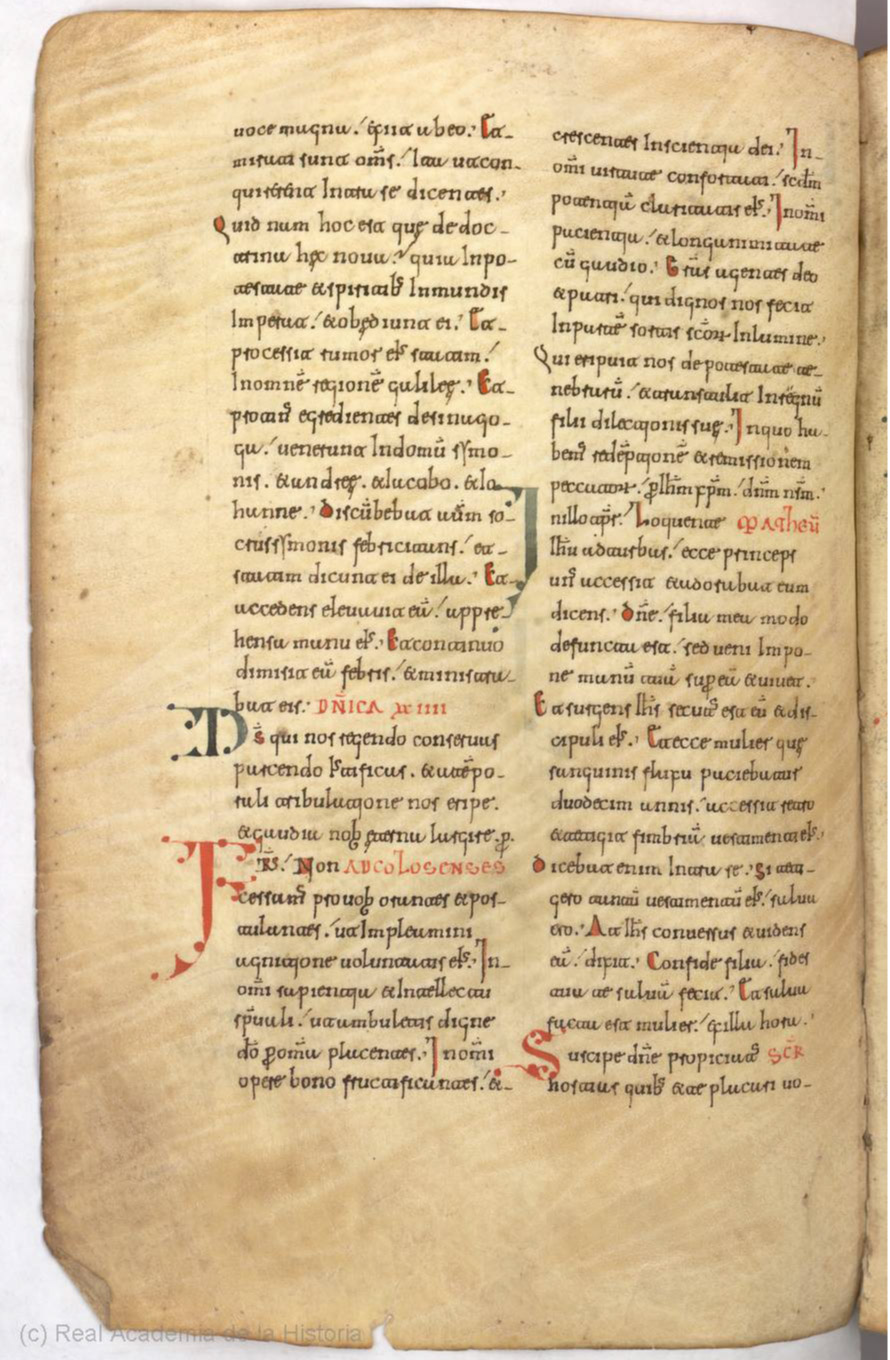 uoce magna. / & exiit ab eo. Et
mirati sunt om̄s. / Ita ut con-
quirerent Intra se dicentes.
Quid nam hoc est quę de doc-
trina hęc noua. / quia Inpo-
testate & spiritib; Inmundis
Imperat. / & obędiunt ei. Et
processit rumor ei; statim. /
Inomnē regionē galileę. Et
protin; egredientes desinago-
ga. / uenerunt Indomū symo-
nis. & andreę. & Iacobo. & Io-
hanne. Discūbebat aūm so-
crus symonis febricitans. / et
statim dicunt ei de illa. Et
accedens eleuauit eā. / appre-
hensa manu ei; Et continuo
dimisit eā febris. / & ministra-
bat eis. DÑICA XXIIII
DS̄ qui nos regendo conseruas
parcendo Iustificas. & a tēpo-
rali tribulatione nos eripe.
& gaudia nob ęterna largire. p̱
FR̄S. / Non AD COLOSENSES
cessam; pro uob orantes & pos-
tulantes. / ut Impleamini
agnitione uoluntatis ei; In-
omī sapientia & Intellectu
sp̄uali. / ut ambuletis digne
dō ꝑ omīa placentes. In omī
opere bono fructificantes. / &
crescentes Inscientia dei. In-
omī uirtute confortati. / scdm̄
potentiā claritatis ei; In omī
patientia. / & longanimitate
cū gaudio. Grās agentes deo
& patri. / qui dignos nos fecit
Inpartē sortis scōrum Inlumine.
Qui eripuit nos de potestate te-
nebrarū. / & transtulit Inregnū
filii dilectionis suę. In quo ha-
bem; redēptionē & remissionem
peccatorum. / ꝑ Ihm̄ xpm̄. / dn̄m nr̄m.
In illo tp̄r. / Loquente MATHEŪ
Ihū ad turbas. / ecce princeps
un; accessit & adorabat eum
dicens. Dn̄e. / filia mea modo
defuncta est. / sed ueni Impo-
ne manū tuā sup̱ eā & uiuet.
Et surgens Ihs̄ secut; est eū & dis-
cipuli ei; Et ecce mulier quę
sanguinis fluxu patiebatur
duodecim annis. / accessit retro
& tetigit fimbriā uestimenti ei;
Dicebat enim Intra se. Si teti-
gero tantū uestimentū ei; / salua
ero. At Ihs̄ conuersus & uidens
eā. / dixit. Confide filia. / fides
tua te saluā fecit. Et salua
facta est mulier. / ex illa hora.
Suscipe dn̄e propitius SCR̄
hostias quib; & te placari uo-